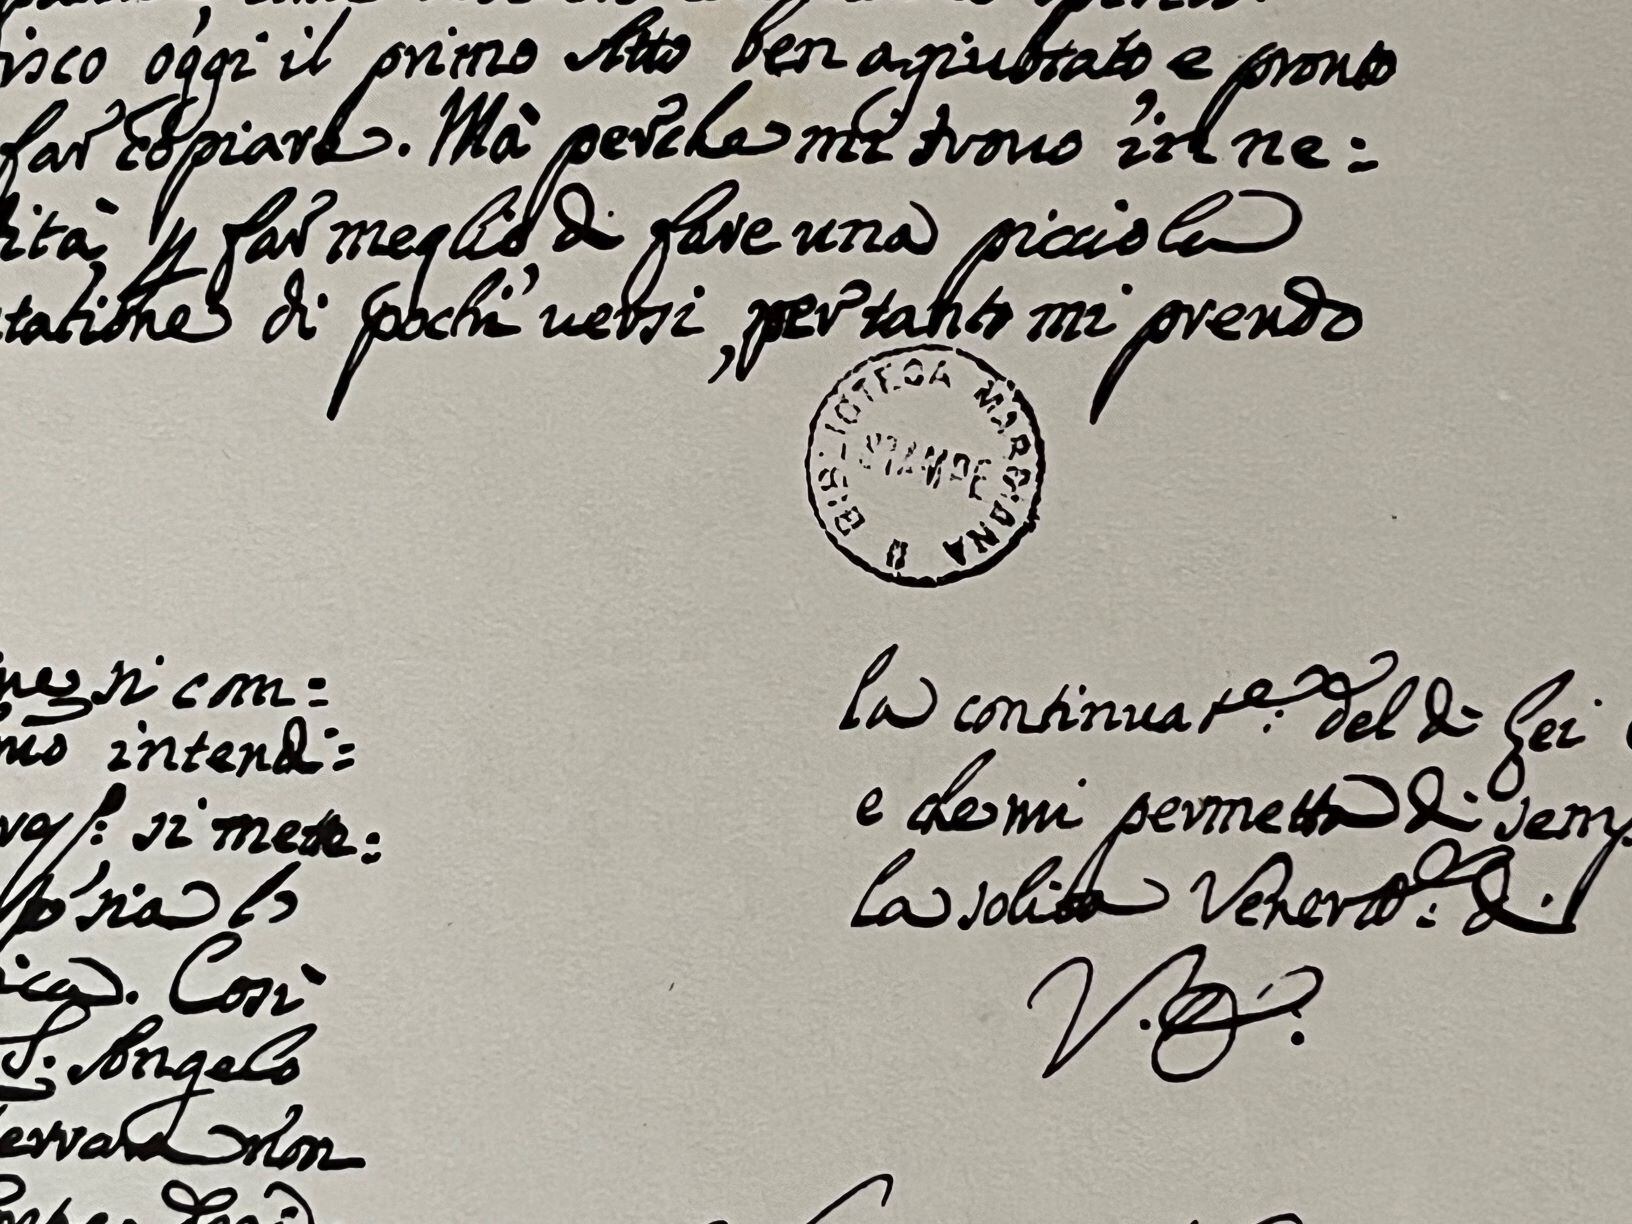 isco oggi il primo Atto ben agiustato e pronto
far copiare. Mà perche mi trovo in ne=
lità, p far meglio di fare una picciola
tatione di pochi uersi, per tanto mi prendo
BIBLIOTECA MARCIANA
STAMPE
ne si com=
mo intendi=
si mette=
sia lo
ica. Così
S. Angelo
Ferrara non
la continuat.e del di Lei
e che mi permetta di semp
la solita Venerato: di
V.